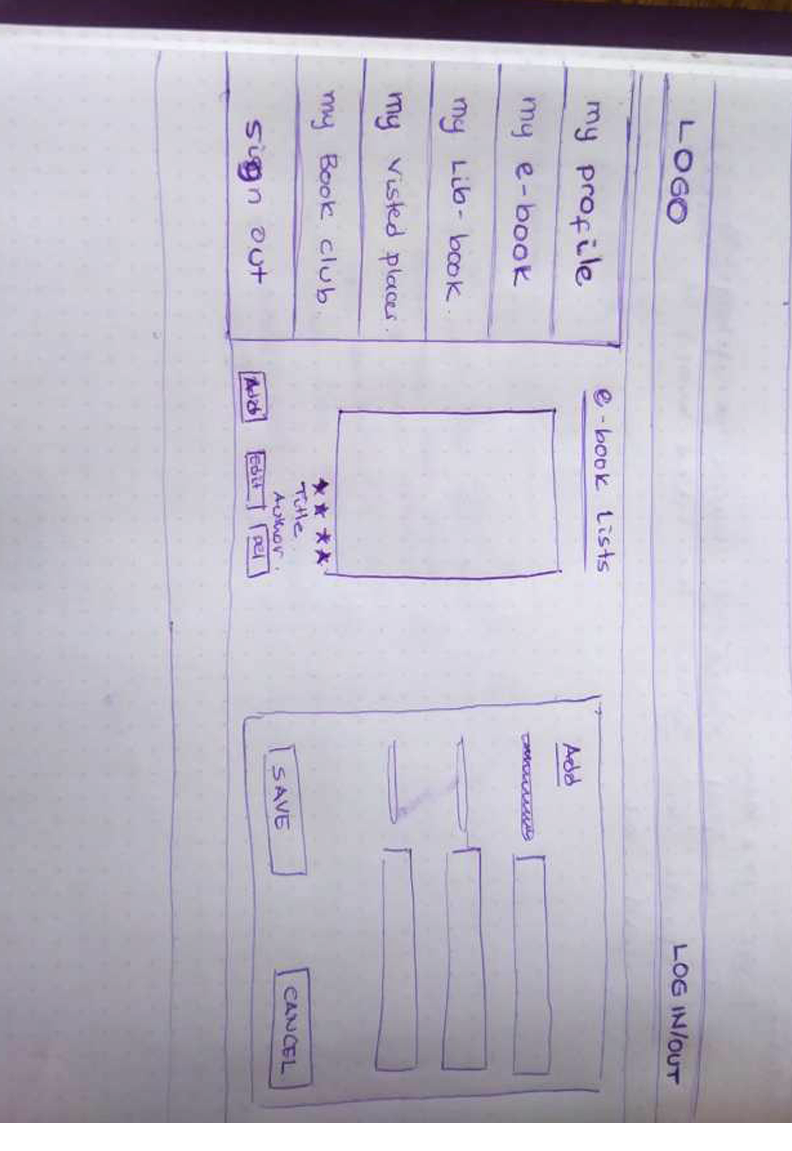 LOGO
LOG IN/OUT
my profile
my e-book
my Lib-book.
my Visted places.
my Book club.
sign out
e-book Lists
Title.
Author.
Add
Edit
Del
Add
SAVE
CANCEL